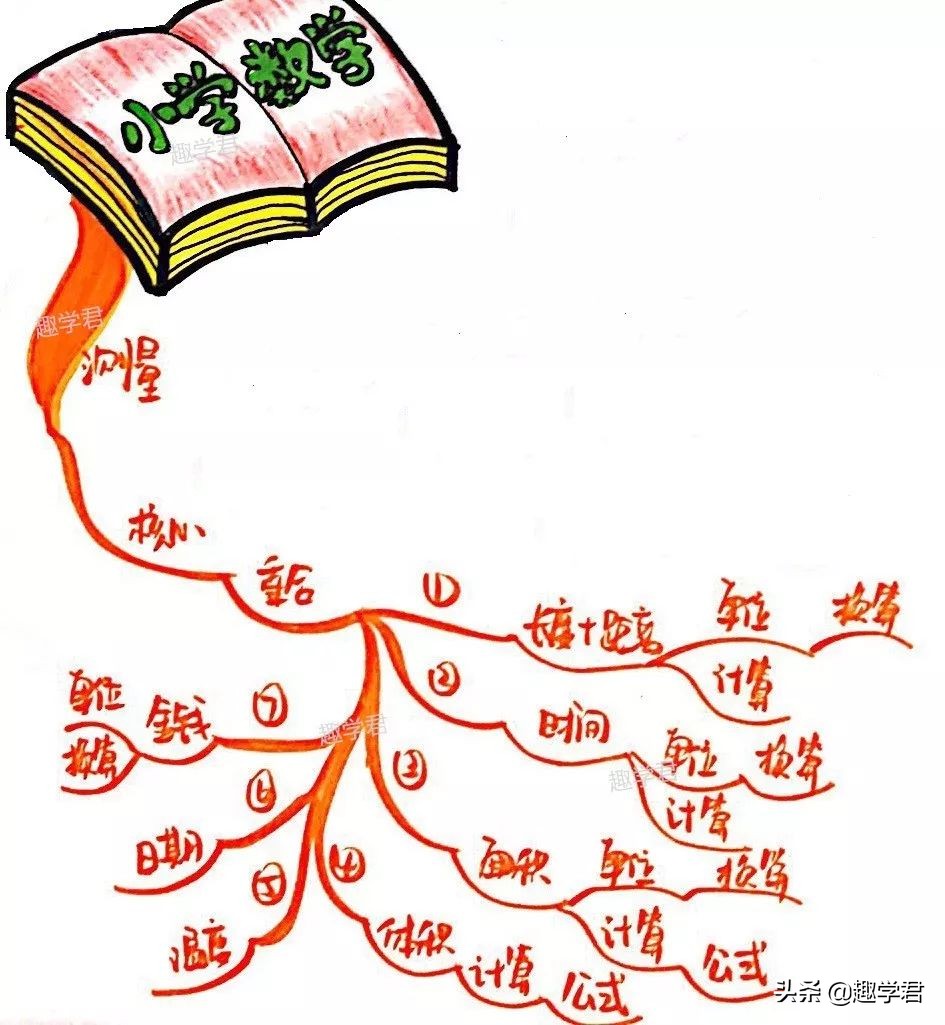 小学数学
趣学君
趣学君
测量
核心
重合
① 长度+距离 单位 换算
计算
② 时间 单位 换算
计算
③ 面积 单位 换算
计算 公式
④ 体积 计算 公式
⑤ 温度
⑥ 日期
⑦ 金钱 单位
换算
趣学君
趣学君
头条 @趣学君